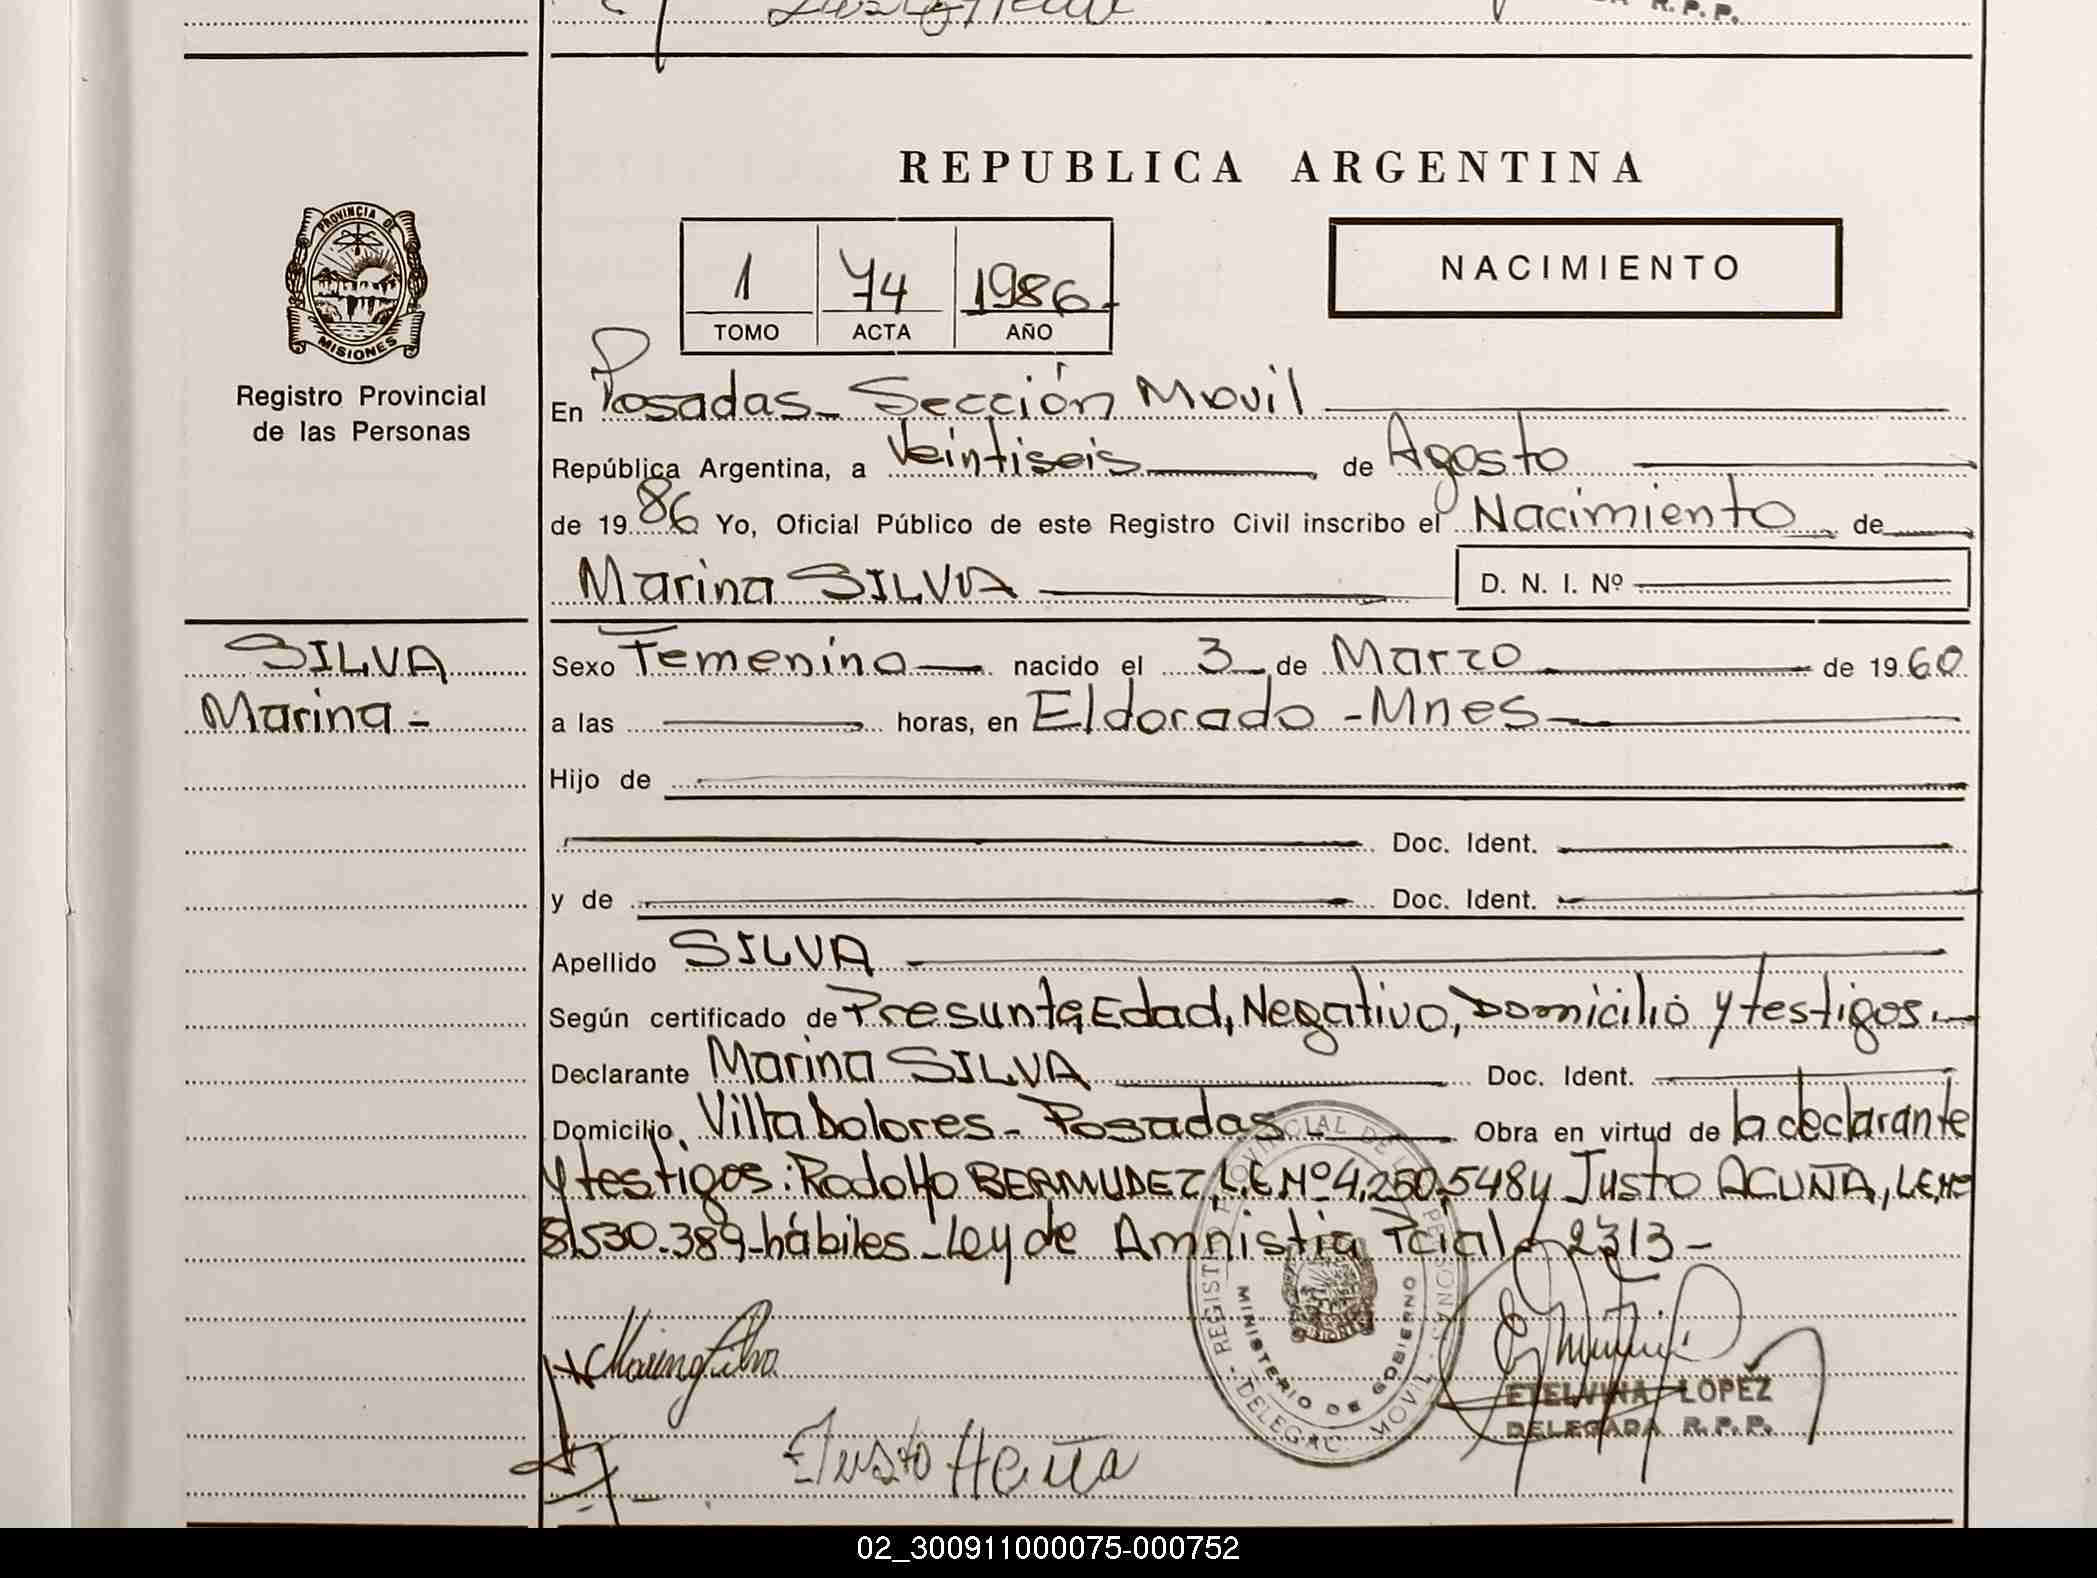 R. P. P.
REPUBLICA ARGENTINA
PROVINCIA DE
MISIONES
Registro Provincial
de las Personas
1 74 1986
TOMO ACTA AÑO
NACIMIENTO
En Posadas - Sección Movil
República Argentina, a Veintiseis de Agosto
de 1986 Yo, Oficial Público de este Registro Civil inscribo el Nacimiento de
Marina SILVA D. N. I. Nº
SILVA
Marina -
Sexo Femenino nacido el 3 de Marzo de 1960
a las horas, en Eldorado - Mnes
Hijo de
Doc. Ident.
y de Doc. Ident.
Apellido SILVA
Según certificado de Presunta Edad, Negativo, Domicilio y testigos.-
Declarante Marina SILVA Doc. Ident.
Domicilio, Villa Dolores - Posadas Obra en virtud de la declarante
y testigos: Rodolfo BERMUDEZ, L.E.Nº 4.250.548 y Justo ACUÑA, L.E.Nº
8.530.389 - hábiles - Ley de Amnistia Pcial 2313 -
REGISTRO PROVINCIAL DE LAS PERSONAS
MINISTERIO DE GOBIERNO
DELEGAC. MOVIL
Marina Silva
ETELVINA LOPEZ
DELEGADA R. P. P.
Justo Acuña
02_300911000075-000752